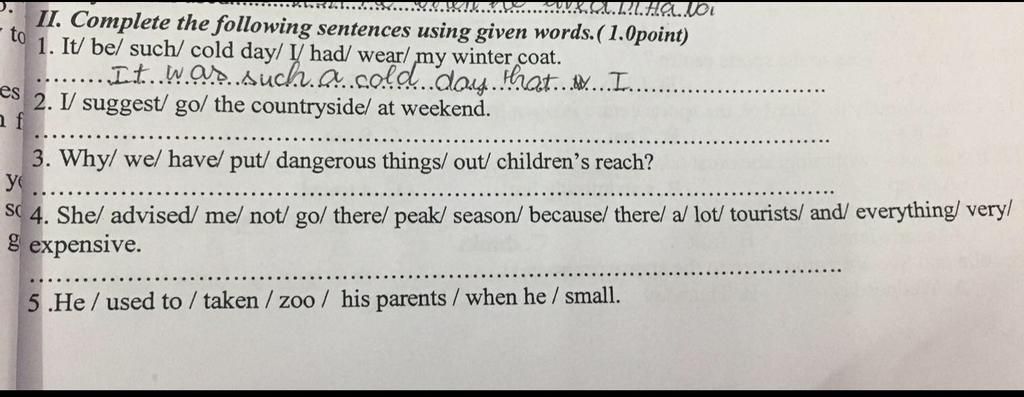 II. Complete the following sentences using given words.( 1.0point)
to
1. It/ be/ such/ cold day/ I/ had/ wear/ my winter coat.
It was such a cold day that I
es
2. I/ suggest/ go/ the countryside/ at weekend.
f
3. Why/ we/ have/ put/ dangerous things/ out/ children's reach?
4. She/ advised/ me/ not/ go/ there/ peak/ season/ because/ there/ a/ lot/ tourists/ and/ everything/ very/
g expensive.
5 .He / used to / taken / zoo / his parents / when he / small.